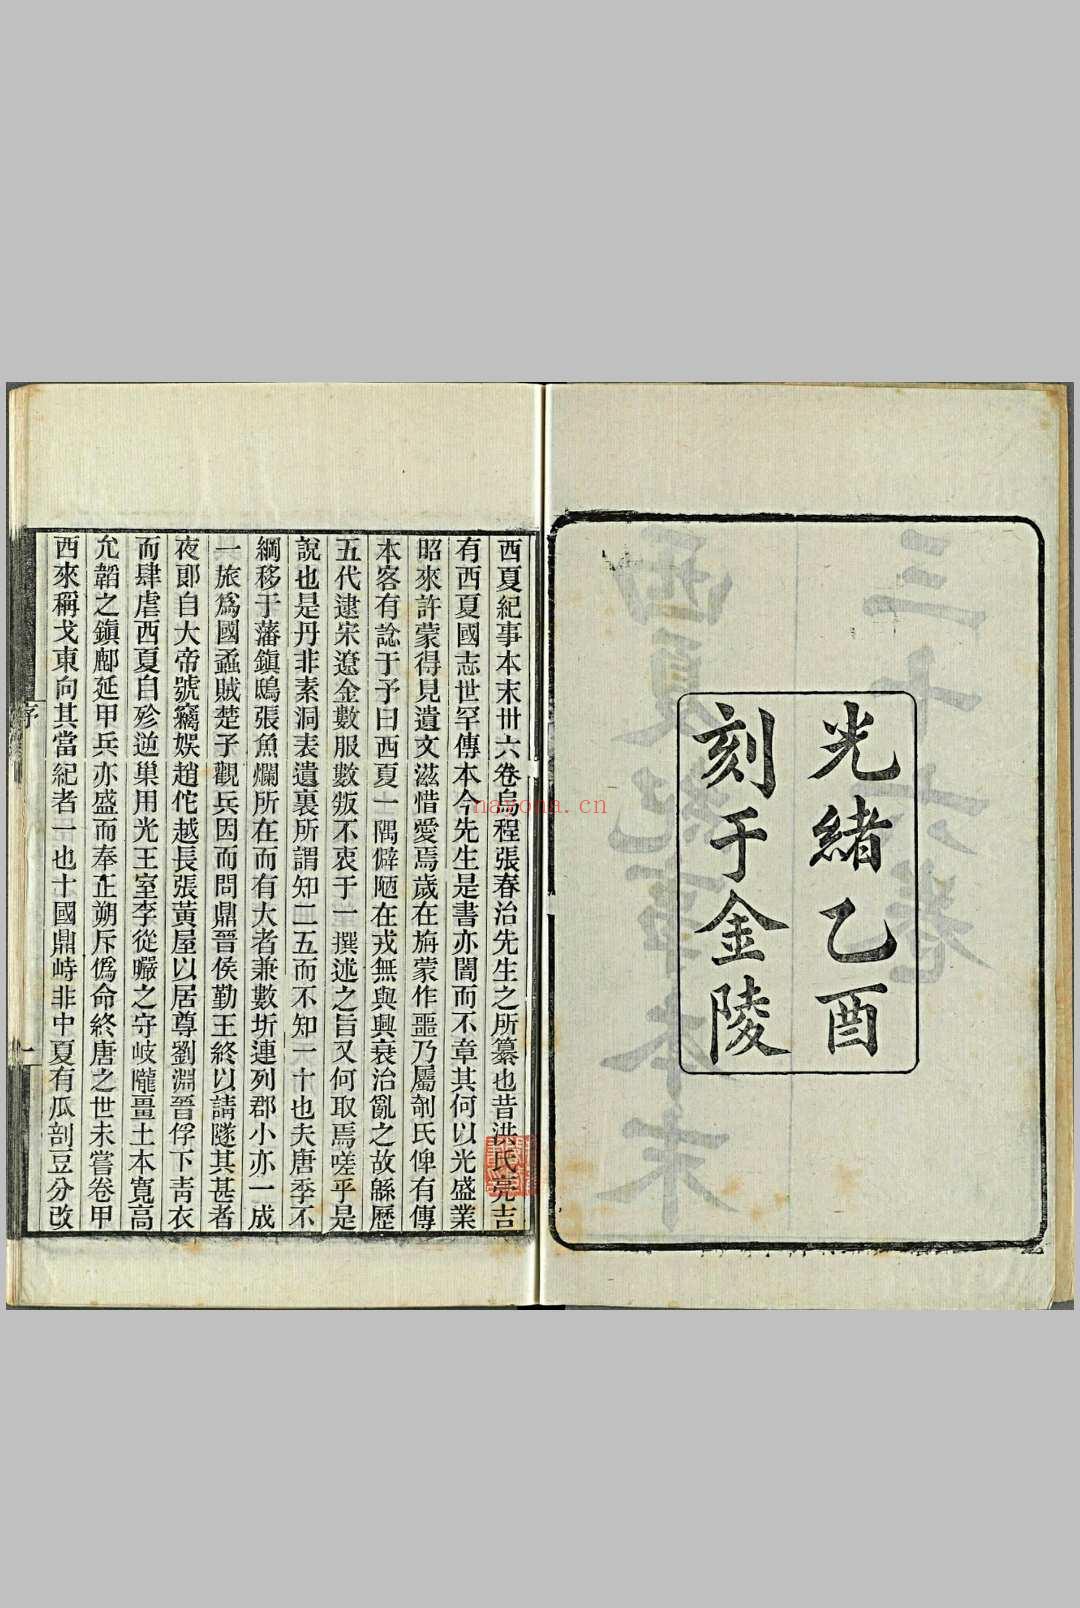 光緒乙酉
刻于金陵
西夏紀事本末卅六卷烏程張春治先生之所纂也昔洪氏亮吉
有西夏國志世罕傳本今先生是書亦闇而不章其何以光盛業
昭來許蒙得見遺文滋惜愛焉歲在旃蒙作噩乃屬剞氏俾有傳
本客有諗于予曰西夏一隅僻陋在戎無與興衰治亂之故緜歷
五代逮宋遼金數服數叛不衷于一撰述之旨又何取焉嗟乎是
說也是丹非素洞表遺裏所謂知二五而不知一十也夫唐季不
綱移于藩鎮鴟張魚爛所在而有大者兼數圻連列郡小亦一成
一旅爲國蟊賊楚子觀兵因而問鼎晉侯勤王終以請隧其甚者
夜郞自大帝號竊娛趙佗越長張黃屋以居尊劉淵晉俘下靑衣
而肆虐西夏自殄逆巢用光王室李從曮之守岐隴畺土本寬高
允韜之鎮鄜延甲兵亦盛而奉正朔斥僞命終唐之世未嘗卷甲
西來稱戈東向其當紀者一也十國鼎峙非中夏有瓜剖豆分改
序
一
nayona.cn